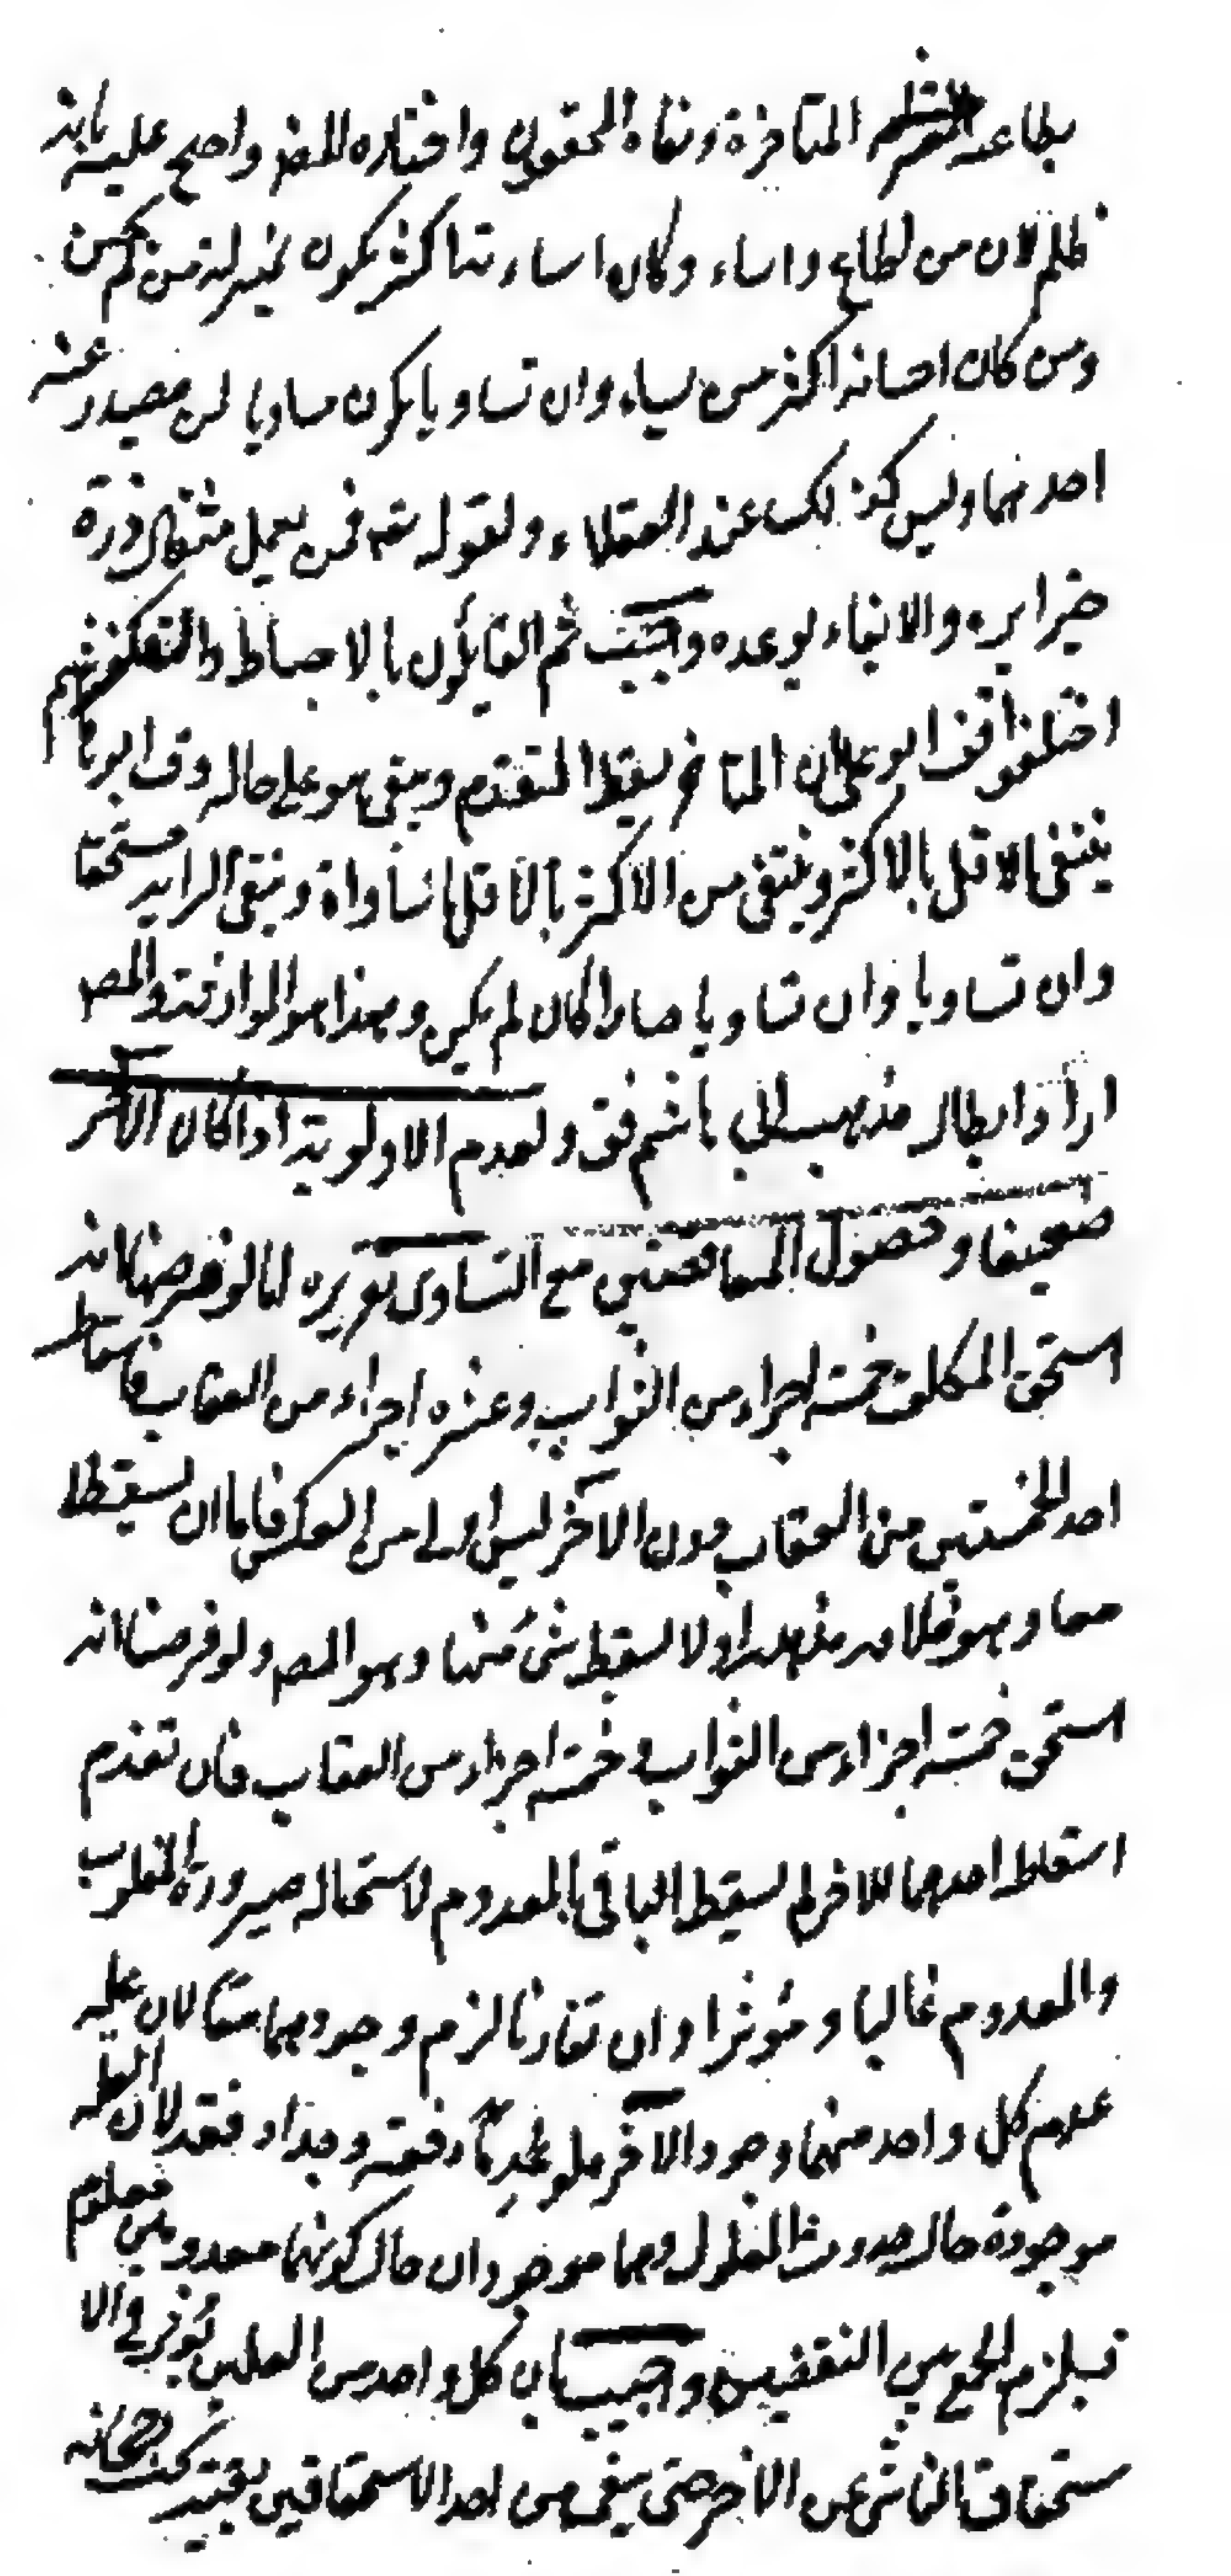 بطاعته المتأخرة ونفاه المحققون واختاره المص واحتج عليه بانه
ظلم لان من اطاع واساء وكان اساءته اكثر يكون بمنزلة من لم يحسن
ومن كان احسانه اكثر من لم يساء وان تساويا يكون مساويا لمن لم يصدر عنه
احدهما وليس كذلك عند العقلاء ولقوله تعه فمن يعمل مثقال ذرة
خيرا يره والايفاء بوعده واجب ثم القايلون بالاحباط والتكفير
اختلفوا فق ابو على ان المتاخر يسقط المتقدم ويبقى هو على حاله وق ابو هاشم
ينتفى الاقل بالاكثر وينتفى من الاكثر بالاقل ما ساواه ويبقى الزايد مستحقا
وان تساويا وان تساويا صارا كان لم يكن وهذا هو الموازنة والمص
اراد ابطال مذهب ابى هاشم فق ولعدم الاولوية اذا كان الآخر
ضعيفا وحصول المتناقضين مع التساوى تقريره انا لو فرضنا انه
استحق المكلف خمسة اجزاء من الثواب وعشرة اجزاء من العقاب فاسقاط
احد الخمستين من العقاب دون الآخر ليس اولى من العكس فاما ان يسقطا
معا وهو خلاف مذهبه او لا يسقط شئ منها وهو المص ولو فرضنا انه
استحق خمسة اجزاء من الثواب وخمسة اجزاء من العقاب فان تقدم
اسقاط احدهما للاخر لم يسقط الباقى بالمعدوم لاستحالة صيرورة المغلوب
والمعدوم غالبا ومؤثرا وان تقارنا لزم وجودهما معا لان علة
عدم كل واحد منهما وجود الآخر فلو عدما دفعة وجدا دفعة لان العلة
موجودة حال حدوث المعلول وهما موجودان حال كونهما معدومين
فيلزم الجمع بين النقيضين واجيب بان كل واحد من العملين يؤثر فى الا
ستحقاق الناشى عن الآخر حتى يبقى من احد الاستحقاقين بقية